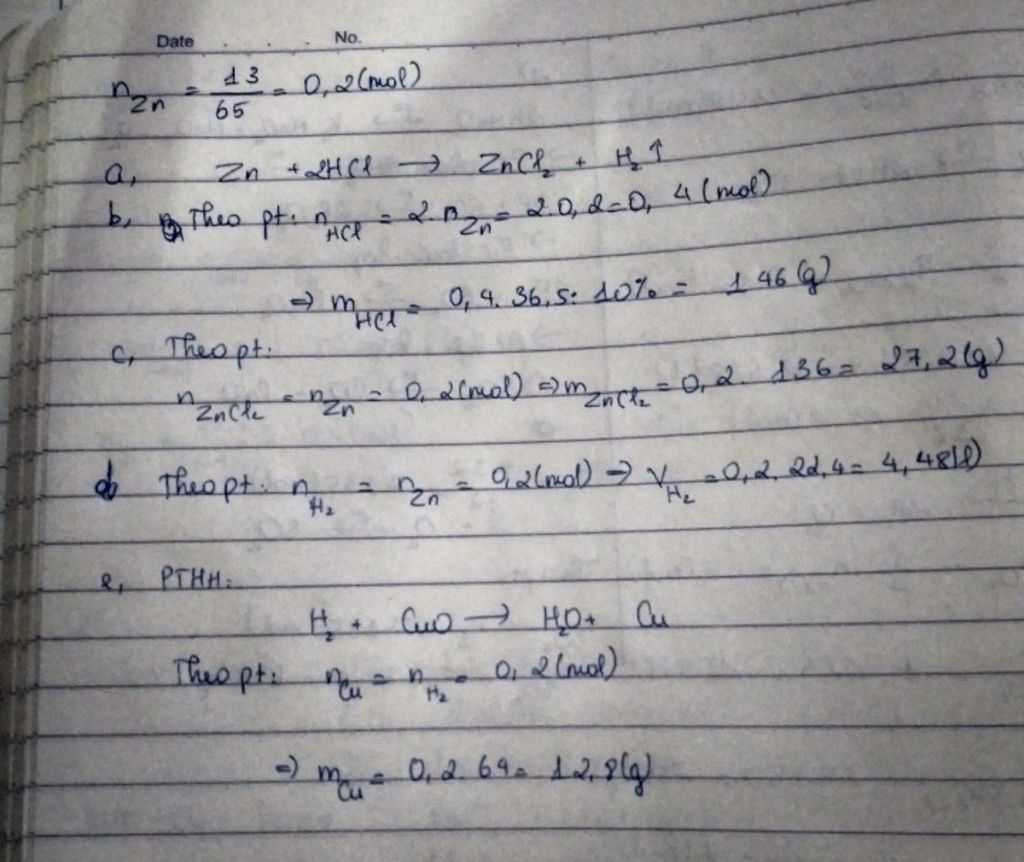 Date . . . No.
n Zn = 13/65 = 0,2 (mol)
a, Zn + 2HCl → ZnCl₂ + H₂↑
b, Theo pt: n HCl = 2. n Zn = 2.0,2=0,4 (mol)
⇒ m HCl = 0,4. 36,5: 10% = 146 (g)
c, Theo pt:
n ZnCl₂ = n Zn = 0,2 (mol) ⇒ m ZnCl₂ = 0,2. 136= 27,2 (g)
d Theo pt: n H₂ = n Zn = 0,2 (mol) ⇒ V H₂ = 0,2. 22,4= 4,48 (l)
e, PTHH:
H₂ + CuO → H₂O + Cu
Theo pt: n Cu = n H₂ = 0,2 (mol)
⇒ m Cu = 0,2. 64= 12,8 (g)